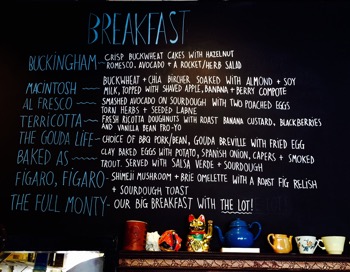 BREAKFAST
BUCKINGHAM~ CRISP BUCKWHEAT CAKES WITH HAZELNUT
ROMESCO. AVOCADO + A ROCKET/HERB SALAD
MACINTOSH ~ BUCKWHEAT + CHIA BIRCHER SOAKED WITH ALMOND + SOY
MILK, TOPPED WITH SHAVED APPLE, BANANA + BERRY COMPOTE
AL FRESCO ~ SMASHED AVOCADO ON SOURDOUGH WITH TWO POACHED EGGS
TORN HERBS + SEEDED LABNE
TERRICOTTA~ FRESH RICOTTA DOUGHNUTS WITH ROAST BANANA CUSTARD, BLACKBERRIES
AND VANILLA BEAN FRO-YO
THE GOUDA LIFE~ CHOICE OF BBQ PORK/BEAN, GOUDA BREVILLE WITH FRIED EGG
BAKED AS ~ CLAY BAKED EGGS WITH POTATO, SPANISH ONION, CAPERS + SMOKED
TROUT. SERVED WITH SALSA VERDE + SOURDOUGH
FIGARO, FIGARO~ SHIMEJI MUSHROOM + BRIE OMELETTE WITH A ROAST FIG RELISH
+ SOURDOUGH TOAST
THE FULL MONTY~ OUR BIG BREAKFAST WITH THE LOT!